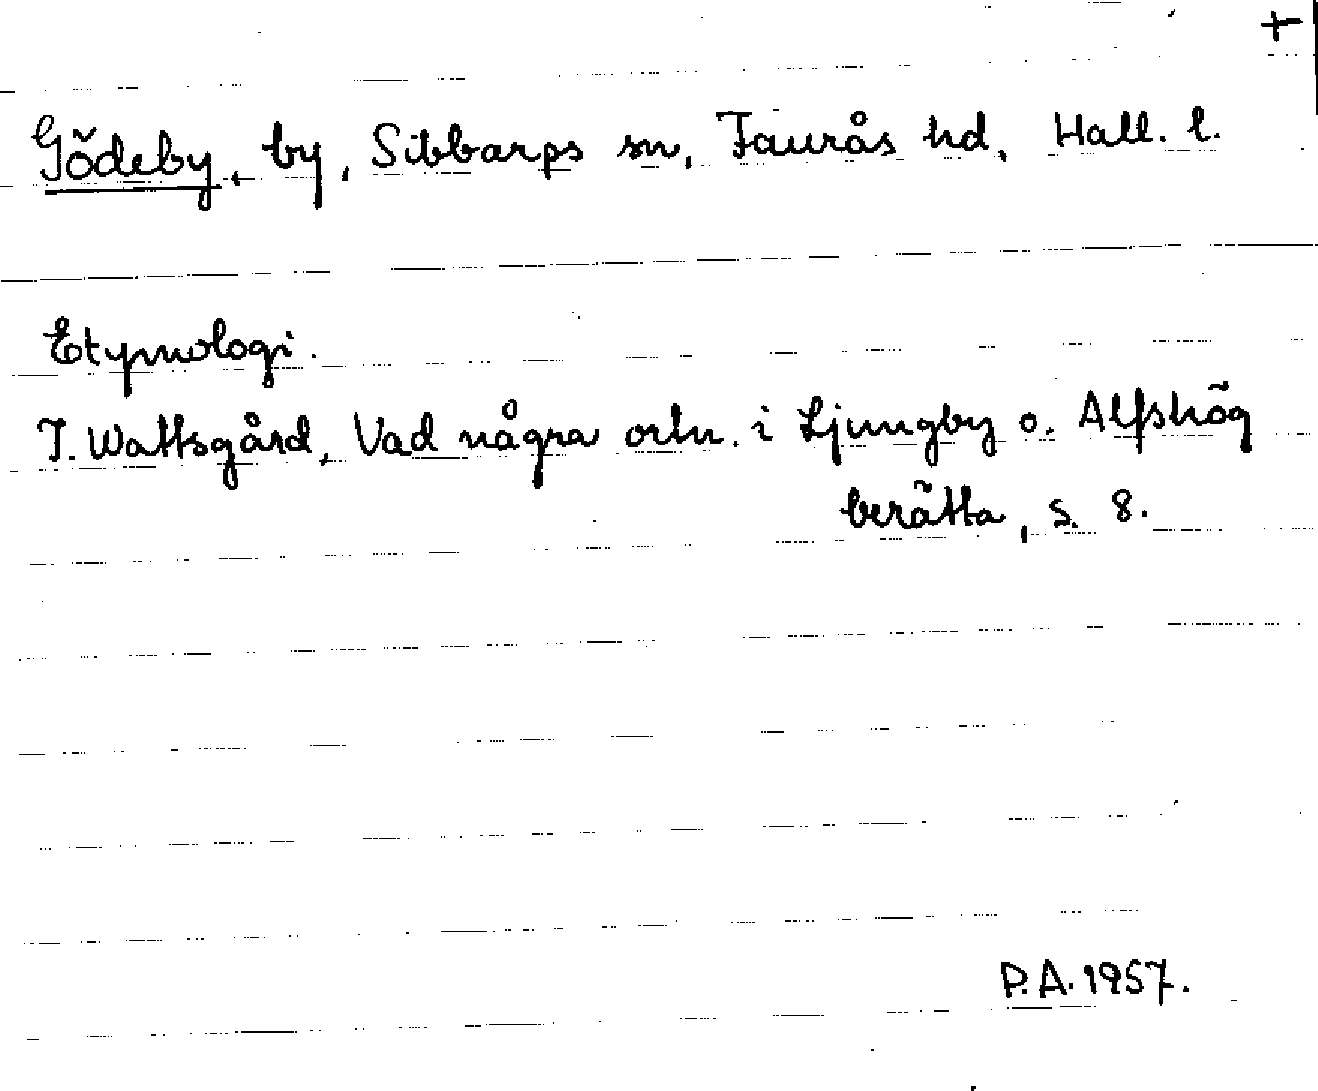 +
Gödeby, by, Sibbarps sn, Faurås hd, Hall. l.
Etymologi.
J. Wattsgård, Vad några ortn. i Ljungby o. Alfshög
berätta, s. 8.
P.A. 1957.